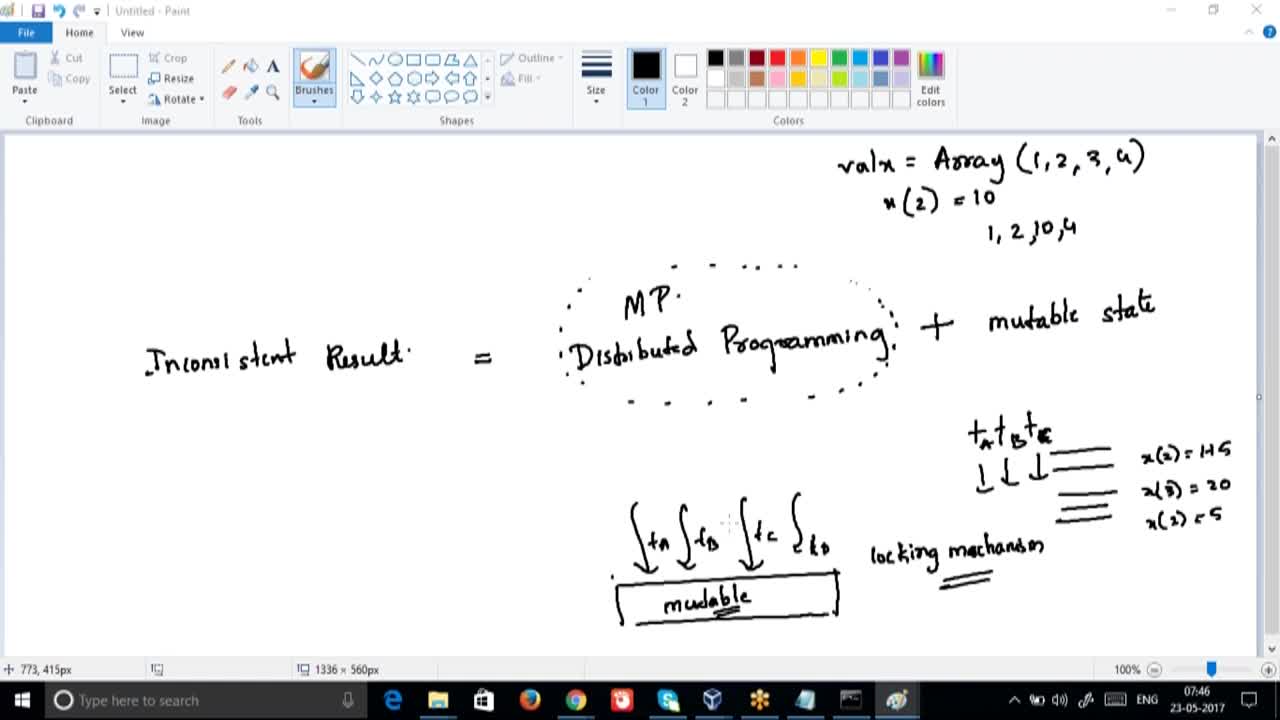 Untitled - Paint
File
Home
View
Cut
Copy
Paste
Clipboard
Crop
Resize
Rotate
Select
Image
Tools
Brushes
Outline
Fill
Shapes
Size
Color 1
Color 2
Edit colors
Colors
valx = Array (1, 2, 3, 4)
x(2) = 10
1, 2, 10, 4
MP.
Inconsistent Result = Distributed Programming + mutable state
tA tB tC
x(2) = 15
x(3) = 20
x(2) = 5
tA tB tC tD
locking mechanism
mutable
773, 415px
1336 × 560px
100%
Type here to search
ENG
07:46
23-05-2017